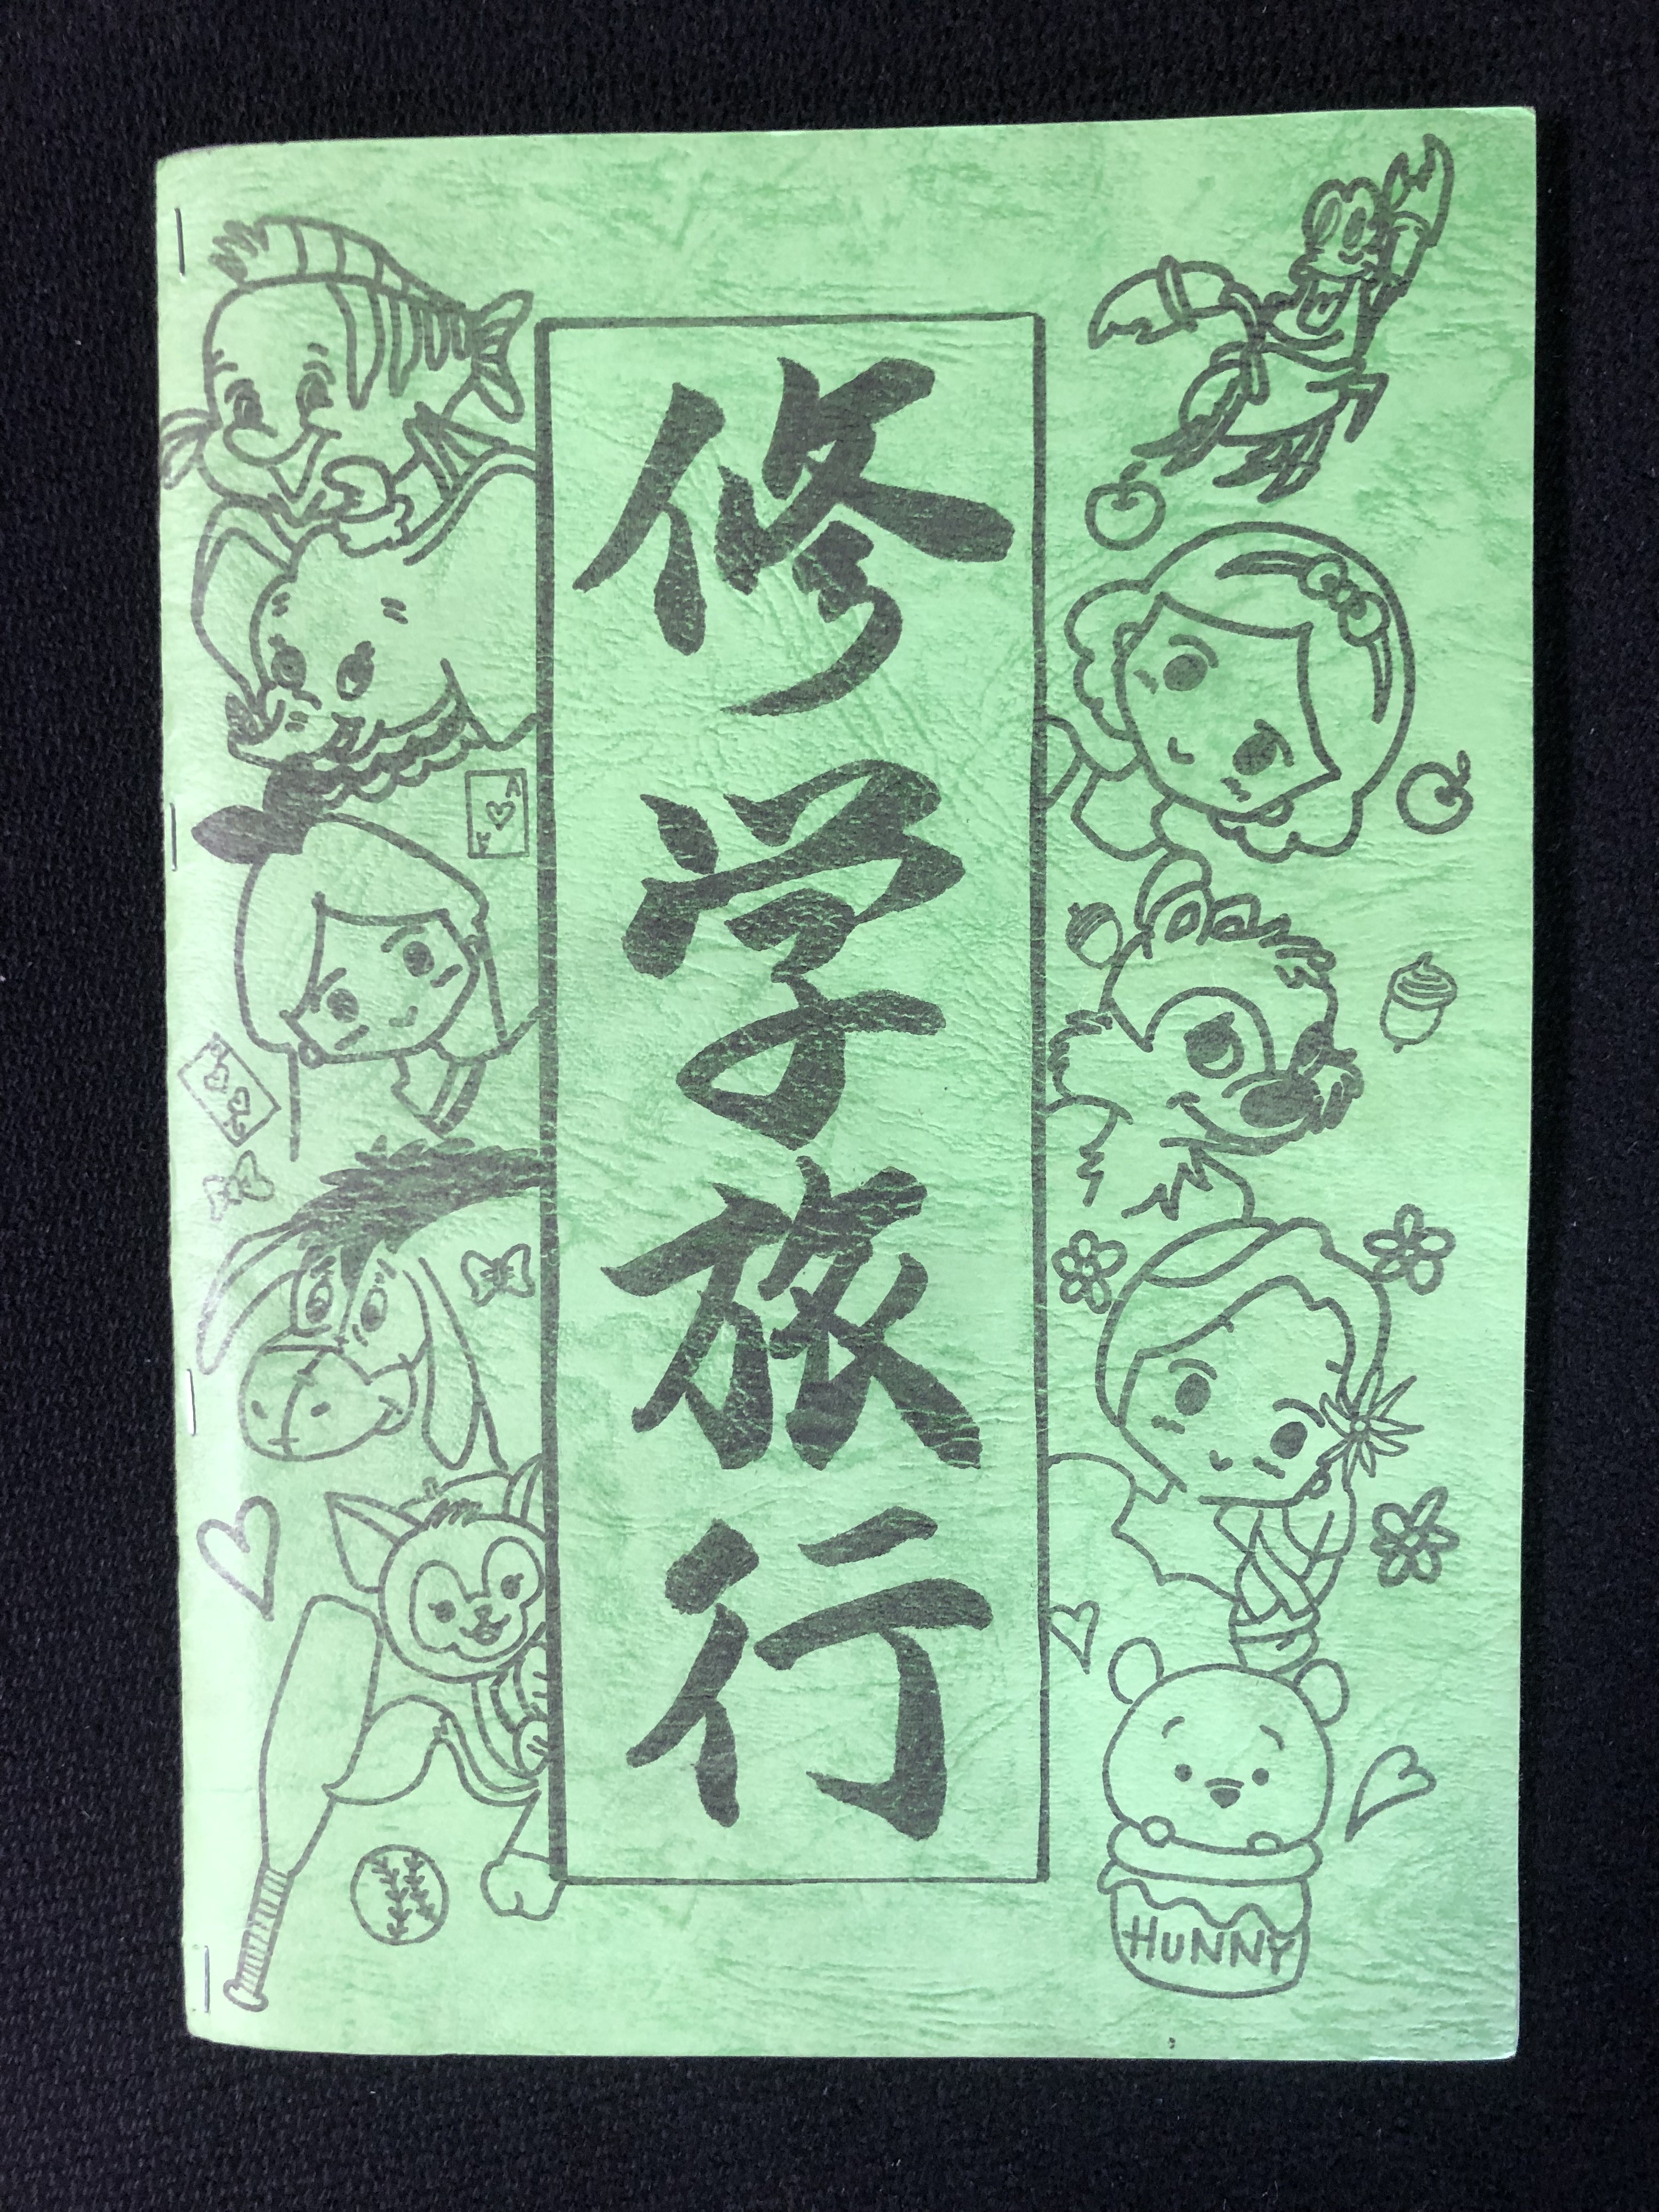 修学旅行
A
A
HUNNY